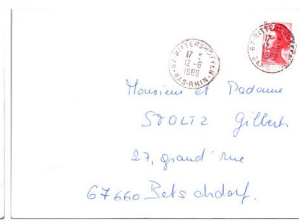 67 RITTERSHOFFEN
17 H
12-6
1989
BAS-RHIN
Monsieur et Madame
STOLTZ Gilbert
27, grand' rue
67660 Betschdorf.